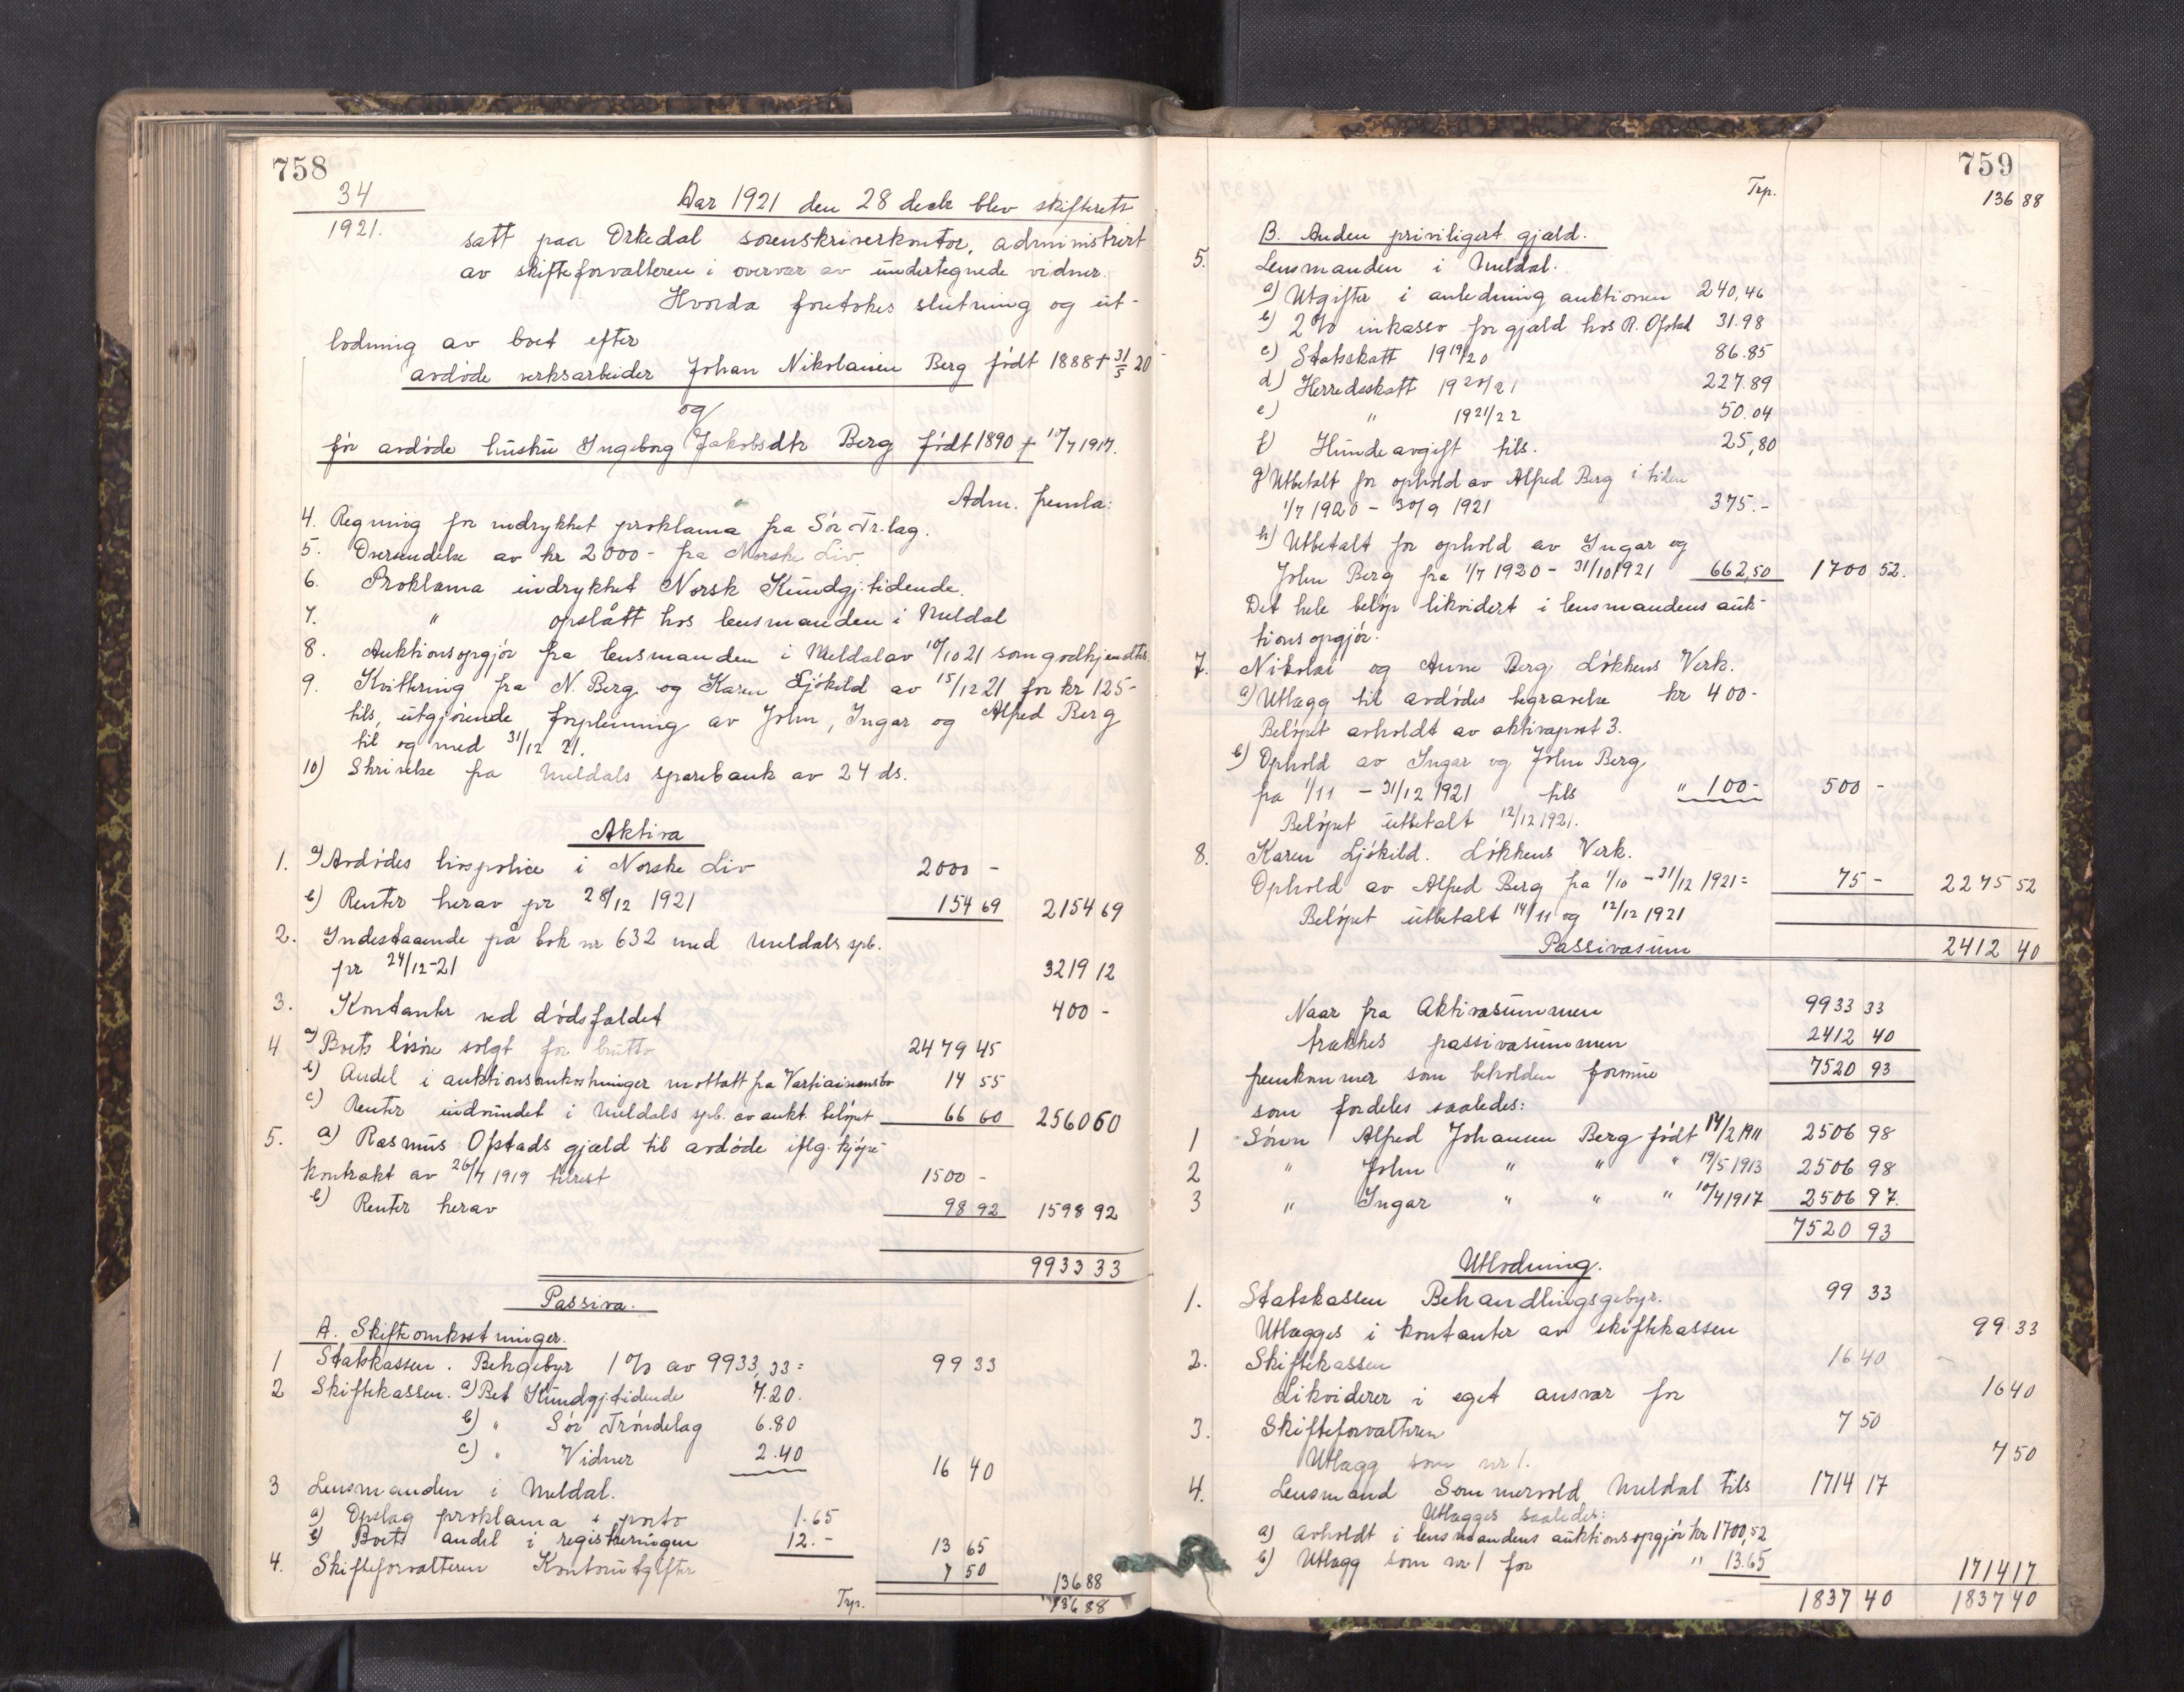 758
34
1921.
Aar 1921 den 28 decbr blev skifteret
satt paa Orkedal sorenskriverkontor, administrert
av skifteforvalteren i overvær av undertegnede vidner.
Hvorda foretokes slutning og ut-
lodning av boet efter
avdøde verksarbeider Johan Nikolaisen Berg født 1888 + 31/5 20
og
før avdøde hustru Ingeborg Jakobsdtr Berg født 1890 + 17/7 1917.
Adm. fremla:
4. Regning for indrykket proklama fra Sør Tr.lag.
5. Oversendelse av kr 2000- fra Norske Liv.
6. Proklama indrykket Norsk Kundgj. tidende.
7. " opslått hos lensmanden i Meldal
8. Auktionsopgjør fra lensmanden i Meldal av 10/10 21 som godkjendtes
9. Kvittering fra N. Berg og Karen Ljøkild av 15/12 21 for kr 125-
tils, utgjørende forpleining av John, Ingar og Alfred Berg
til og med 31/12 21.
10) Skrivelse fra Meldals sparebank av 24 ds.
Aktiva
1. a) Avdødes livspolice i Norske Liv 2000 -
b) Renter herav pr 28/12 1921 154 69 2154 69
2. Indestaaende på bok nr 632 med Meldals spb.
pr 24/12-21 3219 12
3. Kontanter ved dødsfaldet 400 -
4 a) Boets løsøre solgt for brutto 2479 45
b) Andel i auktionsomkostninger mottatt fra Vartiainensbo 14 55
c) Renter indvundet i Meldals spb. av aukt. beløpet 66 60 2560 60
5. a) Rasmus Ofstads gjæld til avdøde iflg. kjøpe-
kontrakt av 26/7 1919 tilrest 1500 -
b) Renter herav 98 92 1598 92
9933 33
Passiva.
A. Skifteomkostninger.
1 Statskassen. Behgebyr 1% av 9933,33 = 99 33
2 Skiftekassen. a) Bet Kundgj.tidende 7.20.
b) " Sør Trøndelag 6.80
c) " Vidner 2.40 16 40
3 Lensmanden i Meldal.
a) Opslag proklama + porto 1.65
b) Boets andel i registreringen 12.- 13 65
4. Skifteforvalteren Kontorutgifter 7 50 136 88
Trp. 136 88
759
Trp. 136 88
B. Anden priviligert gjæld.
5. Lensmanden i Meldal.
a) Utgifter i anledning auktionen 240,46
b) 2% inkasso for gjæld hos R. Ofstad 31.98
c) Statsskatt 1919/20 86.85
d) Herredsskatt 1920/21 227.89
e) " 1921/22 50.04
f) Hundeavgift tils. 25,80
g) Utbetalt for ophold av Alfred Berg i tiden
1/7 1920 - 30/9 1921 375.-
h) Utbetalt for ophold av Ingar og
John Berg fra 1/7 1920 - 31/10 1921 662,50 1700 52.
Det hele beløp likvidert i lensmandens auk-
tionsopgjør.
7. Nikolai og Anne Berg Løkkens Verk.
a) Utlægg til avdødes begravelse kr 400-
Beløpet avholdt av aktivapost 3.
b) Ophold av Ingar og John Berg
fra 1/11 - 31/12 1921 tils " 100- 500 -
Beløpet utbetalt 12/12 1921.
8. Karen Ljøkild. Løkkens Verk.
Ophold av Alfred Berg fra 1/10 - 31/12 1921= 75 - 2275 52
Beløpet utbetalt 14/11 og 12/12 1921
Passivasum 2412 40
Naar fra Aktivasummen 9933 33
trækkes passivasummen 2412 40
fremkommer som beholden formue 7520 93
som fordeles saaledes:
1 Sønn Alfred Johansen Berg født 14/2 1911 2506 98
2 " John " " " 19/5 1913 2506 98
3 " Ingar " " " 10/4 1917 2506 97.
7520 93
Utlodning.
1. Statskassen Behandlingsgebyr. 99 33
Utlægges i kontanter av skiftekassen 99 33
2. Skiftekassen 16 40
Likviderer i eget ansvar for 16 40
3. Skifteforvalteren 7 50
Utlægg som nr 1. 7 50
4. Lensmand Sommervold Meldal tils 1714 17
Utlægges saaledes:
a) avholdt i lensmandens auktionsopgjør kr 1700,52
b) Utlægg som nr 1 for " 13.65 1714 17
1837 40 1837 40